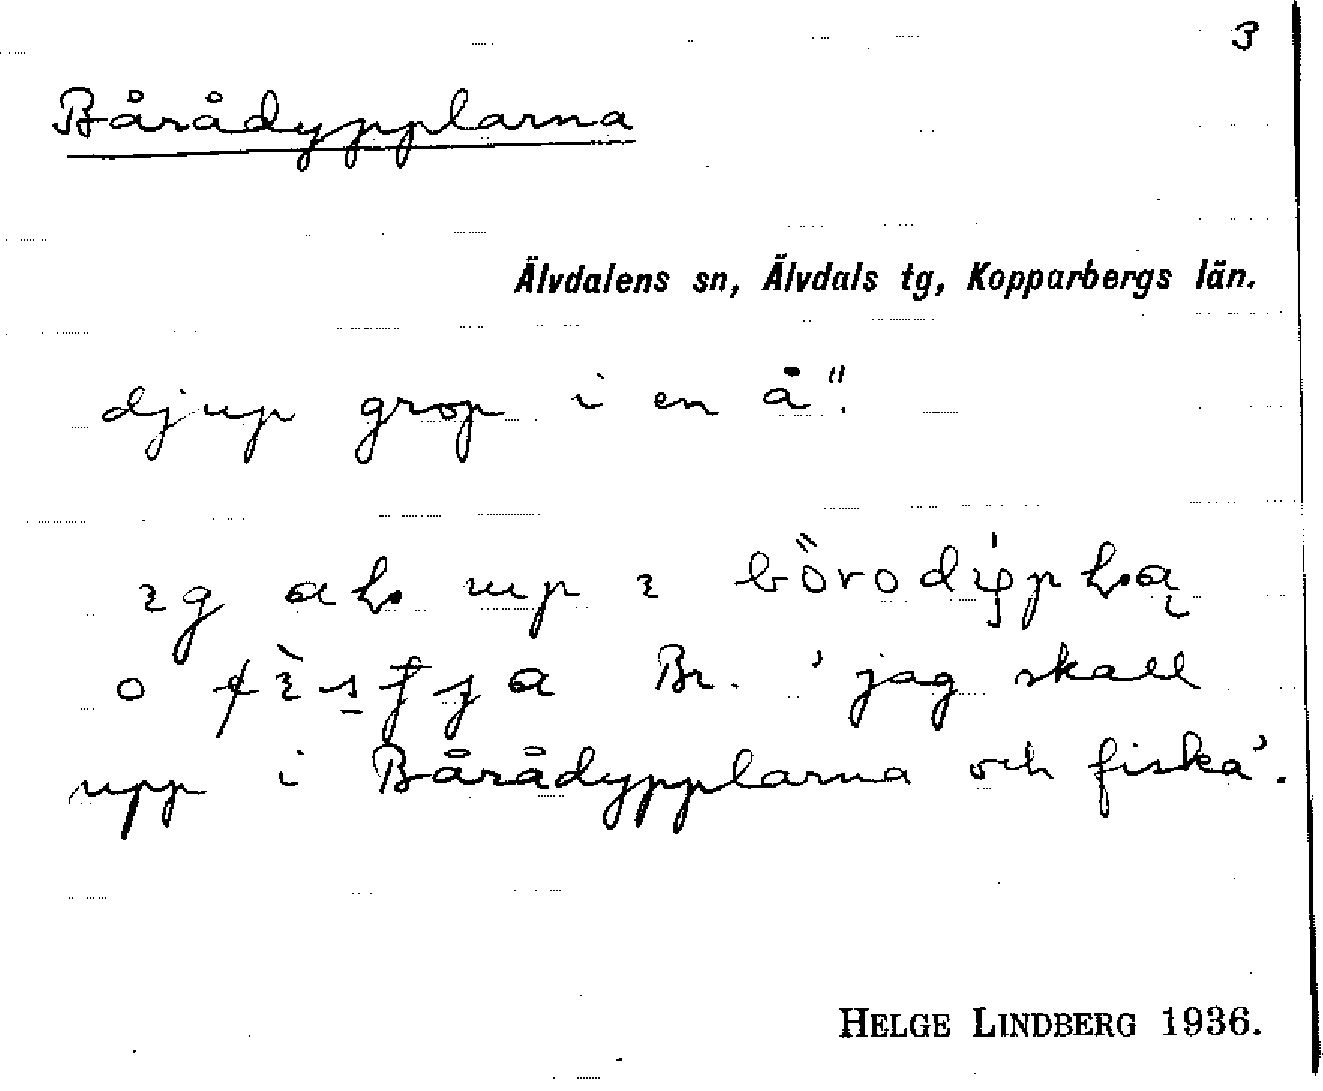 3
Bårådypplarna
Älvdalens sn, Älvdals tg, Kopparbergs län.
djup grop i en å".
o Br. 'jag skall
upp i Bårådypplarna och fiska'.
HELGE LINDBERG 1936.